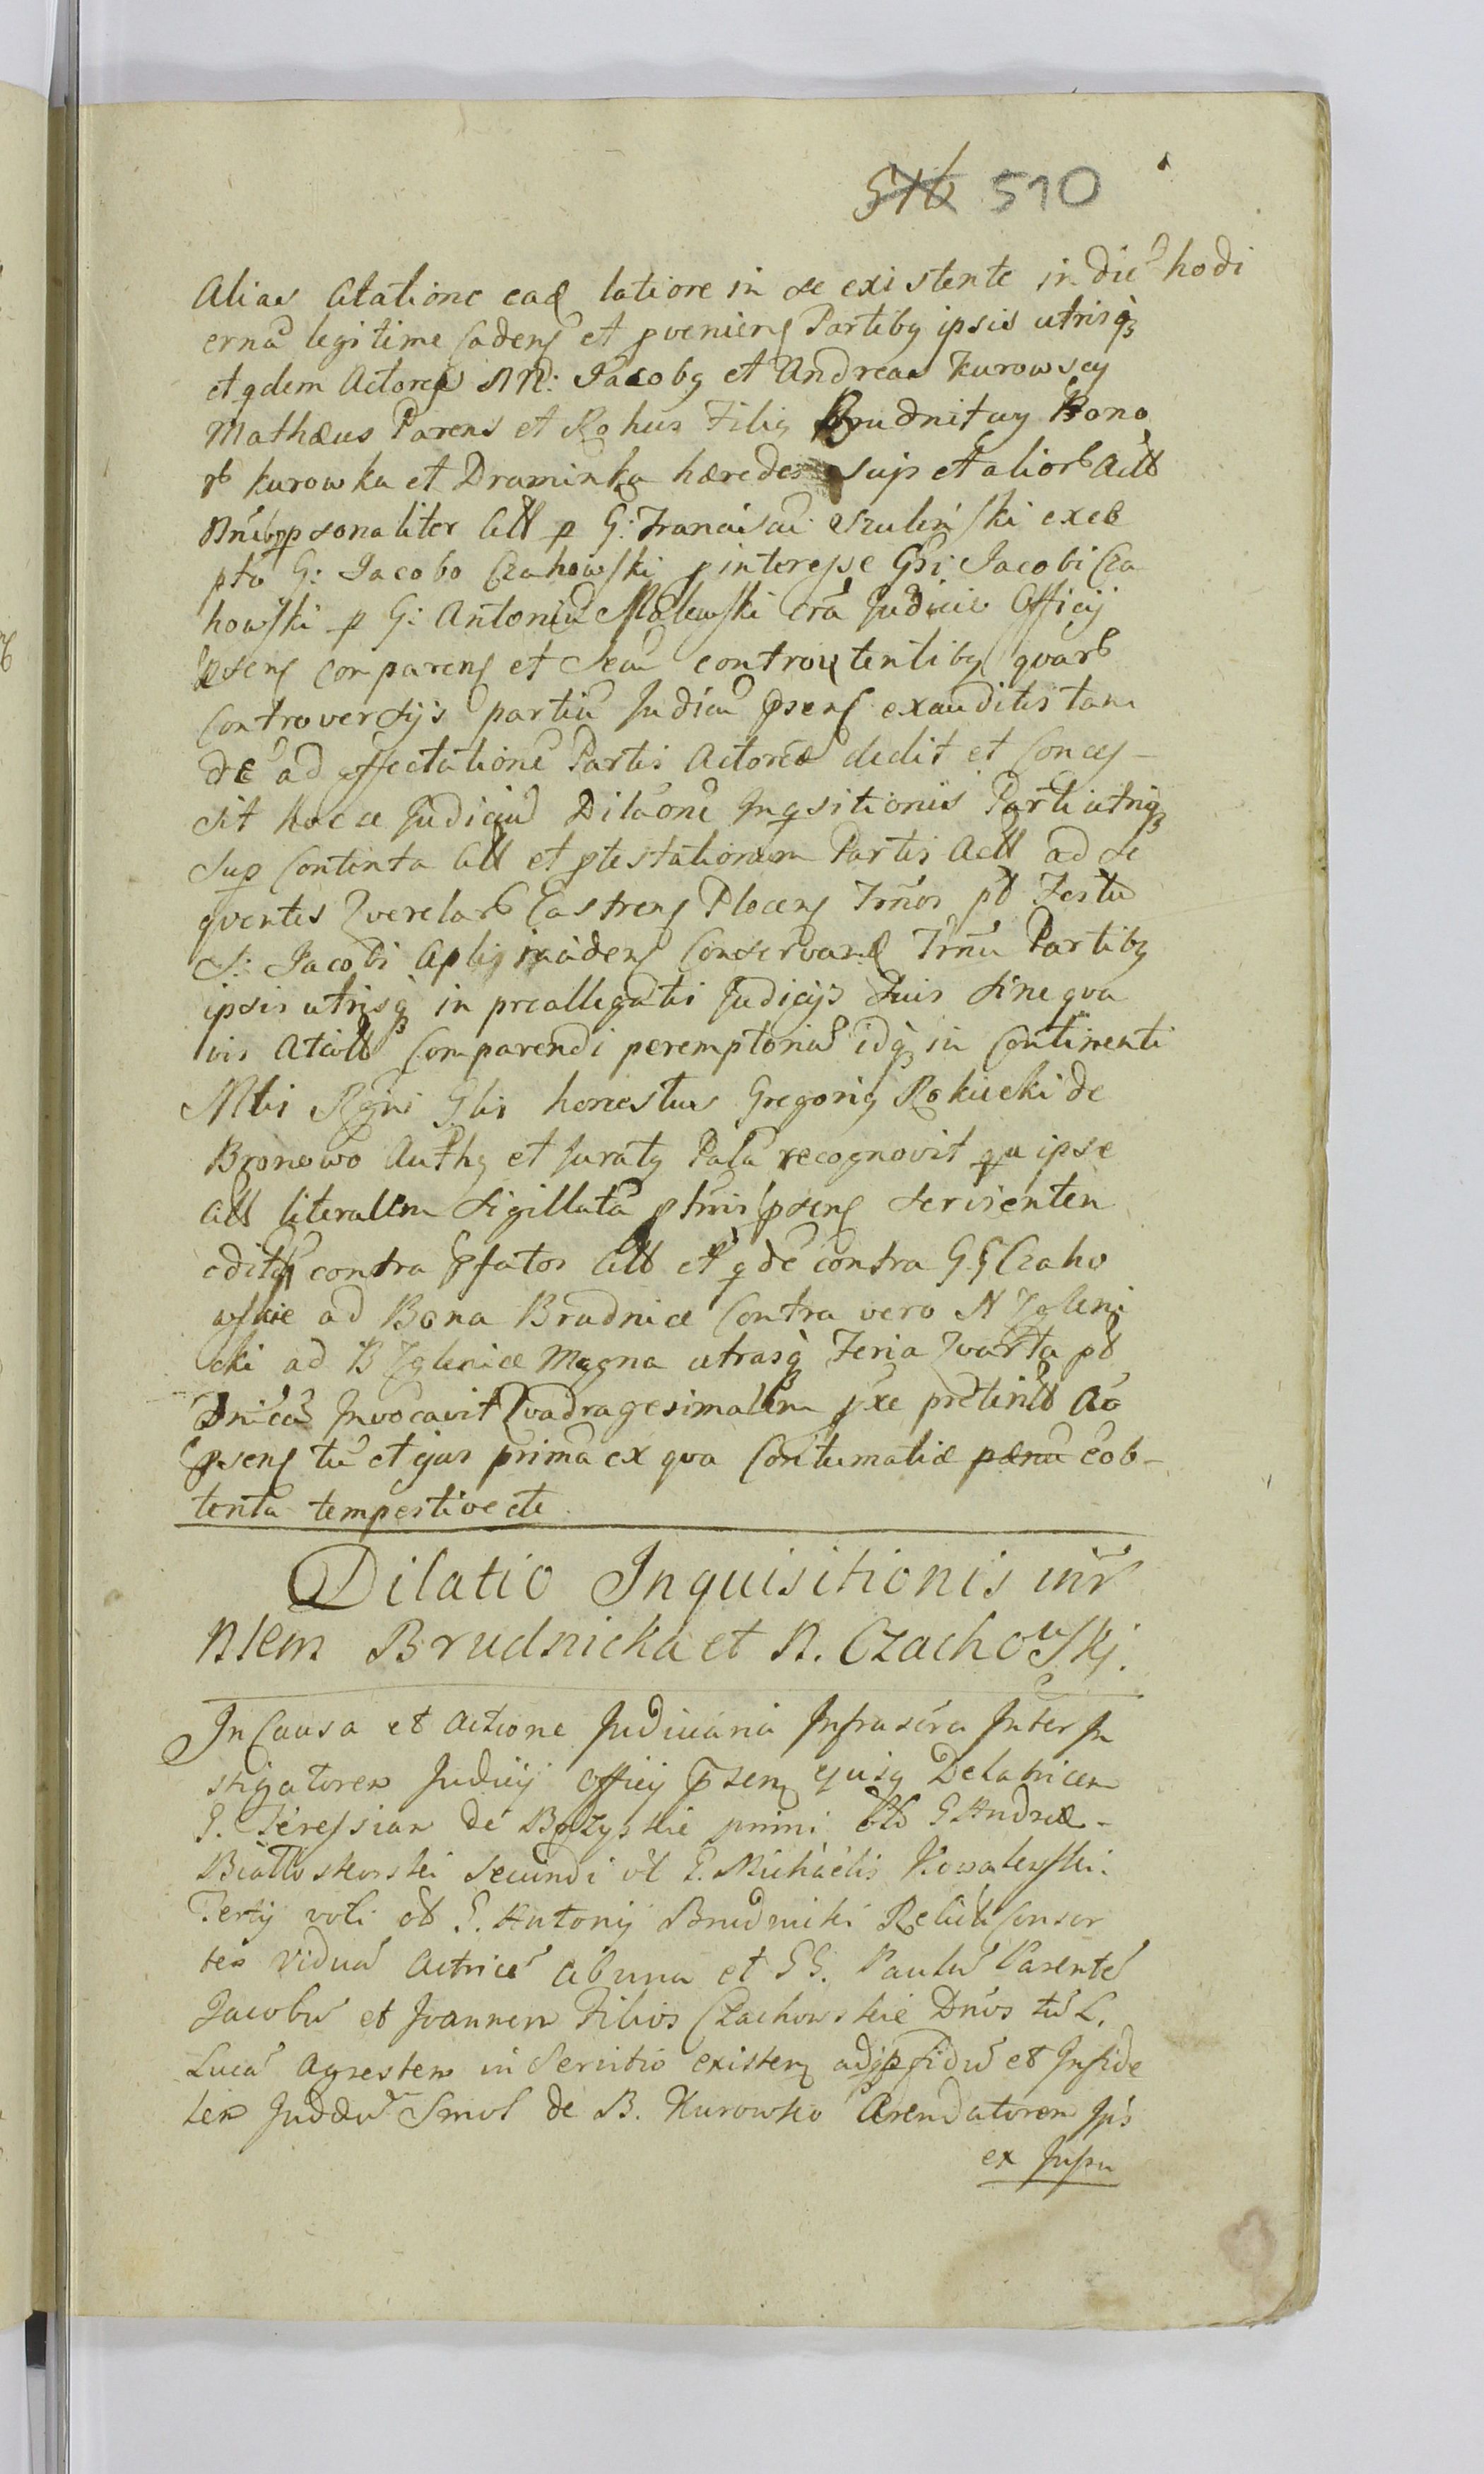 510
Alias Citatione ead latiore in se existente in die hodi
erna legitime cadens et proveniens Partibg ipsis utrisq
et qdem Actorea NN: Jacobg et Andreas Kurowscy
Mathæus Parens et Rohus Filig Brudnitcy Bono
rb Kurowka et Draminka hæredes sup et aliorb Actt
personaliter Citt p G: Franciscu Szuleński exce
pto G: Jacobo Czahowski p interesse Gsi Jacobi Cza
howski p G: Antoniu Malewski cra Judicio Officij
psens comparens et Secu controvertentibg quarb
Controversijs partiu Judiciu psens exauditis tan
de ad affectatione Partis Actoreæ dedit et Conces-
sit hocce Judiciu Dilaone Inqsitionis Parti utriq
Sup Contenta Citt et ptestationum Partis Actt ad se
quentes Querelarb Castrens Plocens Trmos pt Festu
S: Jacobi Apli incidens Conservand Trmu Partibg
ipsis utrisq in preallegatis Judicijs Suis Sine qua
vis Comparendi peremptoriu idq in Continenti
Mtis Rgni Glis honestus Gregorig Rokicki de
Bronowo Authg et Juratg Pala recognovit qu ipse
Citt literalem Sigillata ptrmis psens Servienten
edita contra pfatos Citt et qde contra GG Czaho
wskie ad Bona Brudnice Contra vero N Zgleni
cki ad B Zglenice Magna utrasq Feria Quarta pt
Dnica Invocavit Quadragesimalem pxe pretertt Ao
psens tu et ejus prima ex qua Contumatiæ pænu eob-
tenta tempestive etc
Dilatio Inquisitionis inr
Nlem Brudnicka et N. Czachowskj.
In Causa et Actione Judiciaria Infrascra Inter In
stigatorem Judicij Officij psens ejusq Delatricem
G. Teressiam de Bozyskie primi olb G Andreæ-
Biattoskorski secundi ol G. Michaelis Kowalewski
Tertij voti ol G. Antonij Brudnicki Relicta Consor
tem Vidua Actrice ab una et GG. Paulu Parente
Jacobu et Joannem Filios Czachowskie Dnos tu L.
Luca Agrestem in Servitio existens adq pfidu et Infide
lem Juddæu Smol de B. Kurowko Arendatorem Ips
ex Jussu